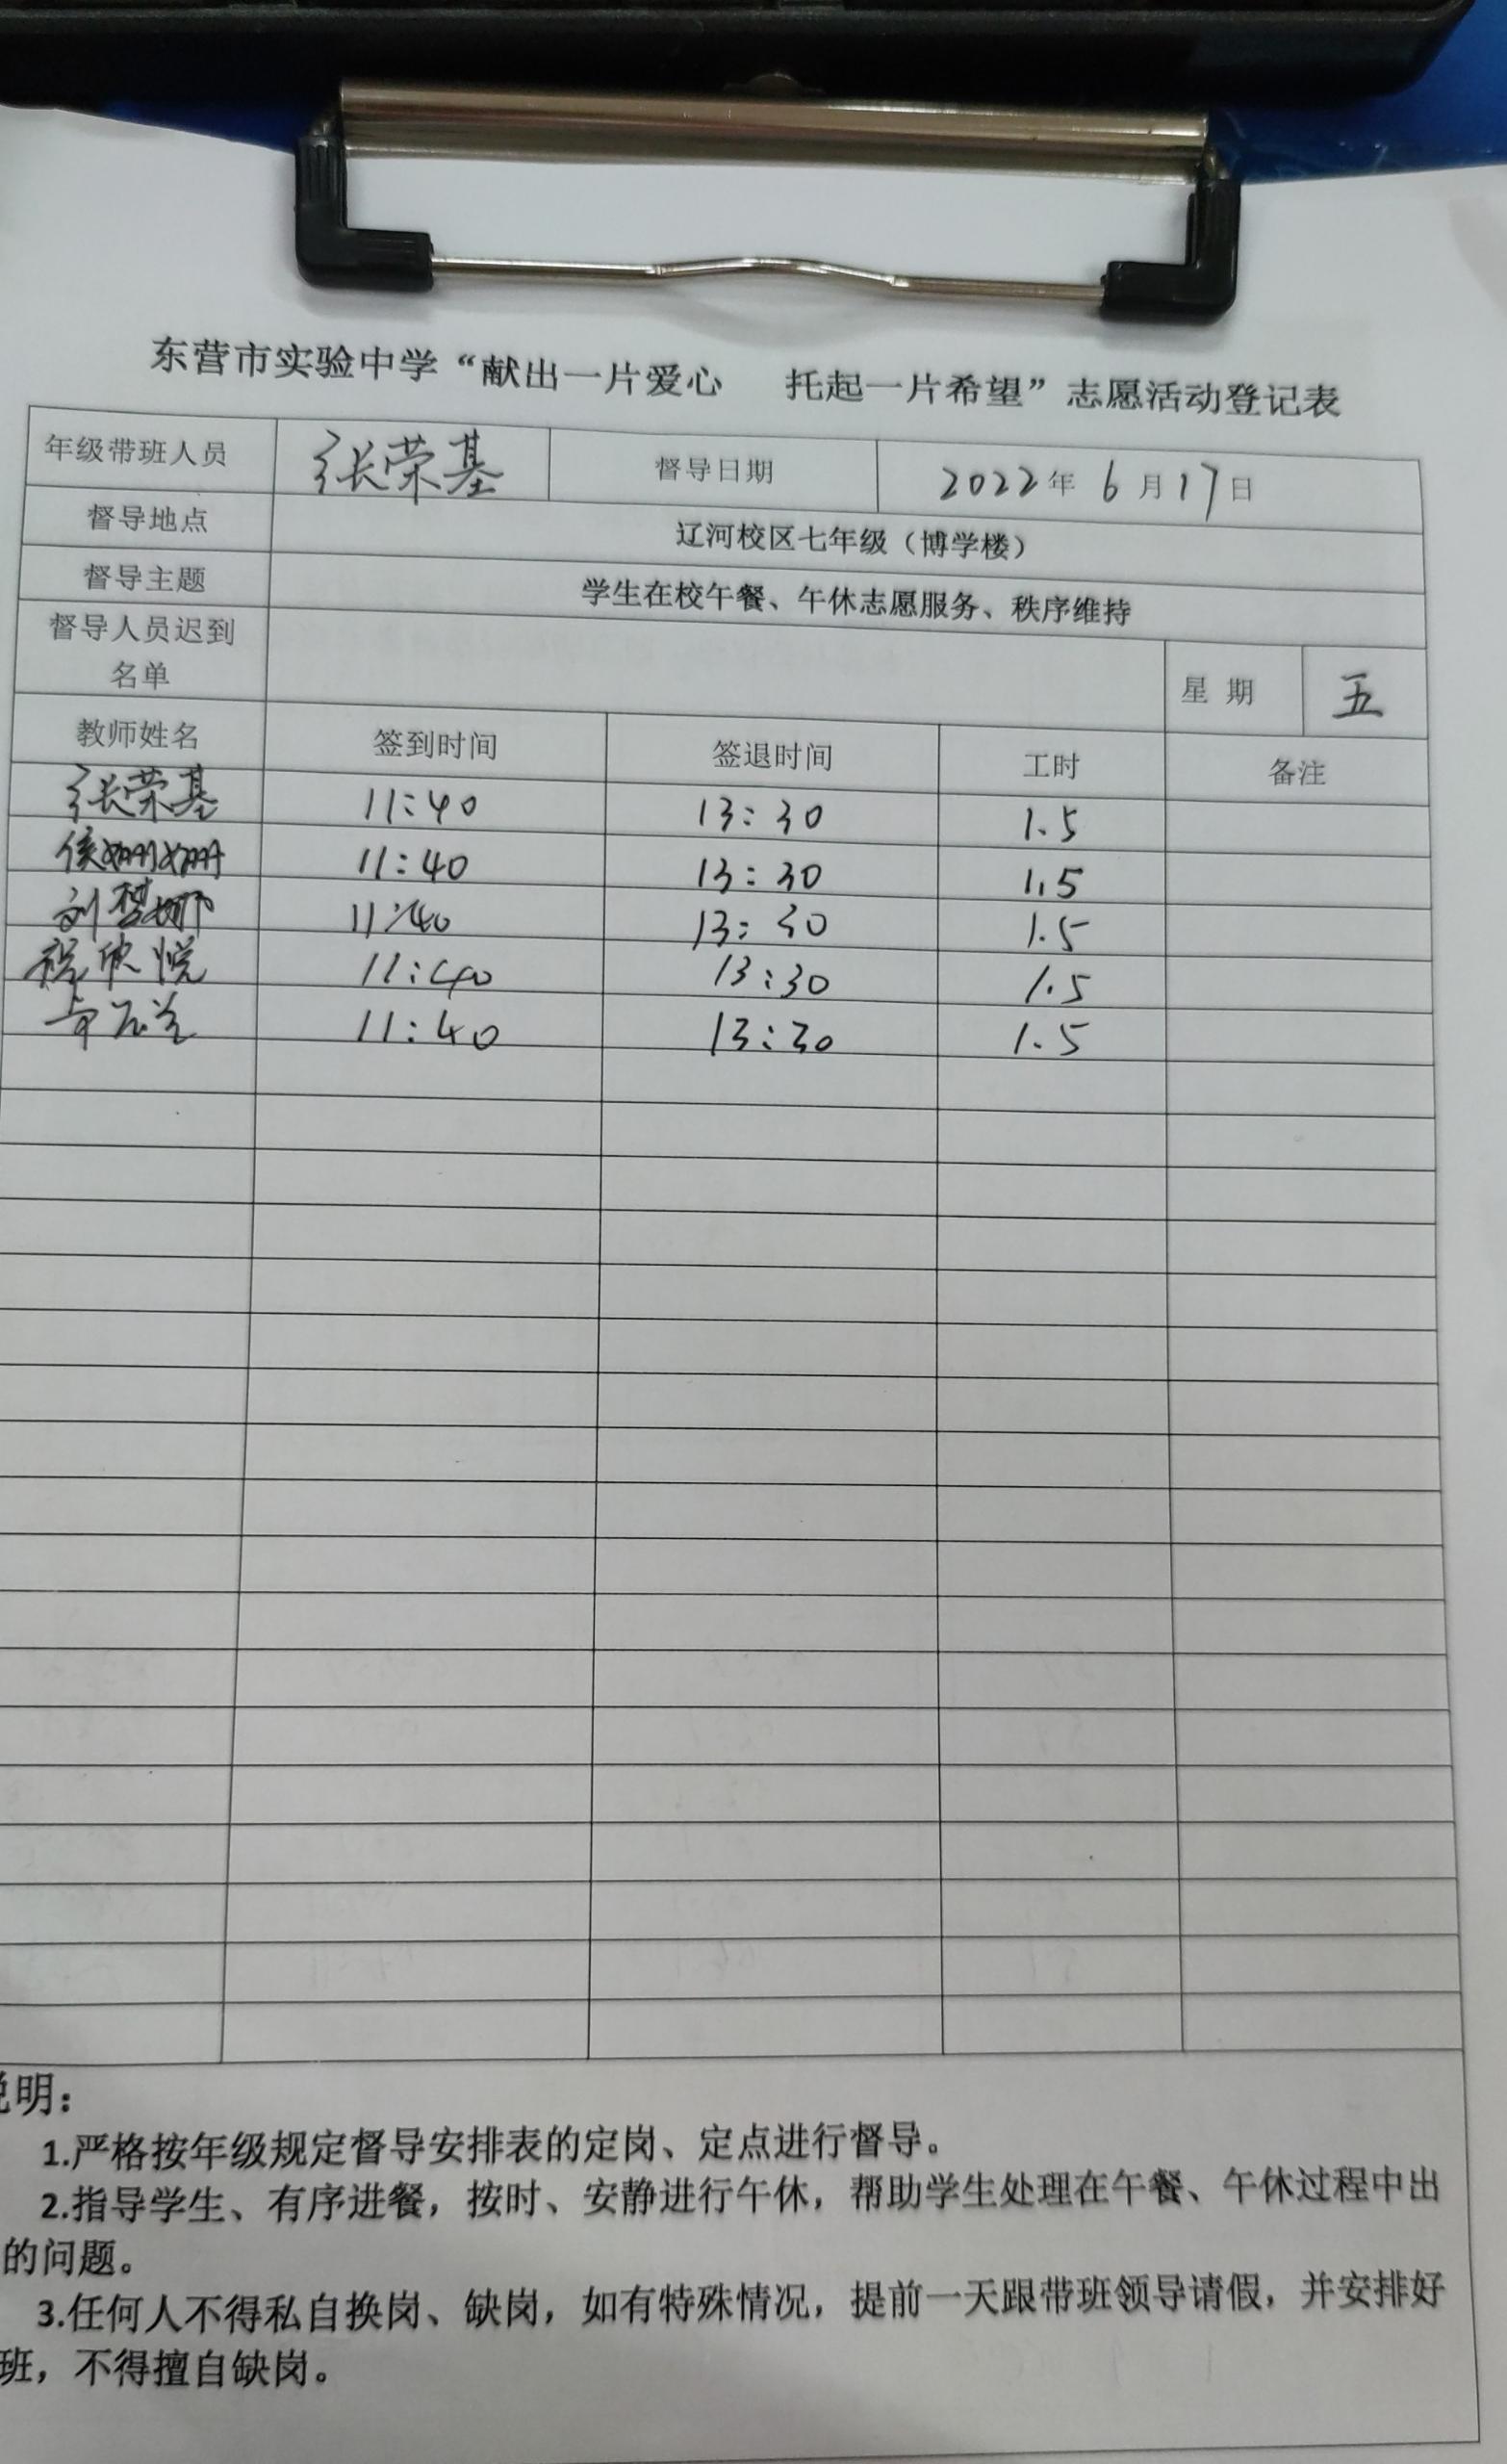 东营市实验中学“献出一片爱心 托起一片希望”志愿活动登记表
年级带班人员 张荣基 督导日期 2022年 6月17日
督导地点 辽河校区七年级（博学楼）
督导主题 学生在校午餐、午休志愿服务、秩序维持
督导人员迟到
名单 星 期 五
教师姓名 签到时间 签退时间 工时 备注
张荣基 11:40 13:30 1.5
侯姗姗 11:40 13:30 1.5
刘梦娜 11:40 13:30 1.5
程欣悦 11:40 13:30 1.5
11:40 13:30 1.5
说明：
1.严格按年级规定督导安排表的定岗、定点进行督导。
2.指导学生、有序进餐，按时、安静进行午休，帮助学生处理在午餐、午休过程中出
的问题。
3.任何人不得私自换岗、缺岗，如有特殊情况，提前一天跟带班领导请假，并安排好
班，不得擅自缺岗。